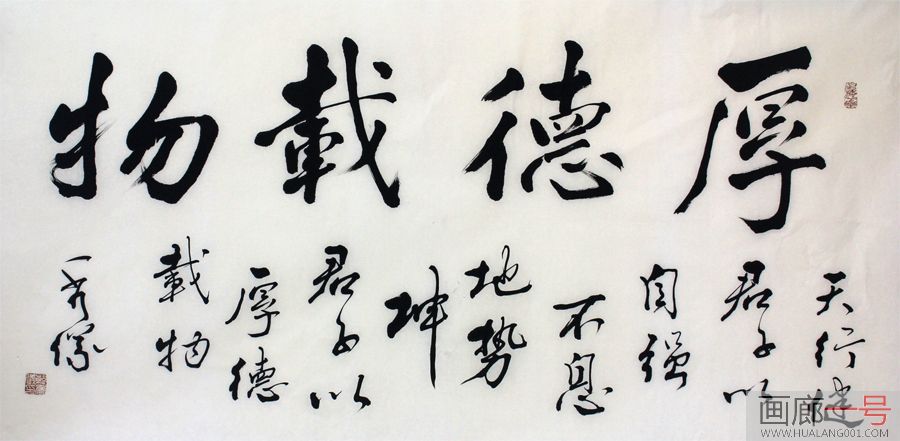 厚德載物
天行健
君子以
自强
不息
地勢
坤
君子以
厚德
載物
画廊一号
WWW.HUALANG001.COM